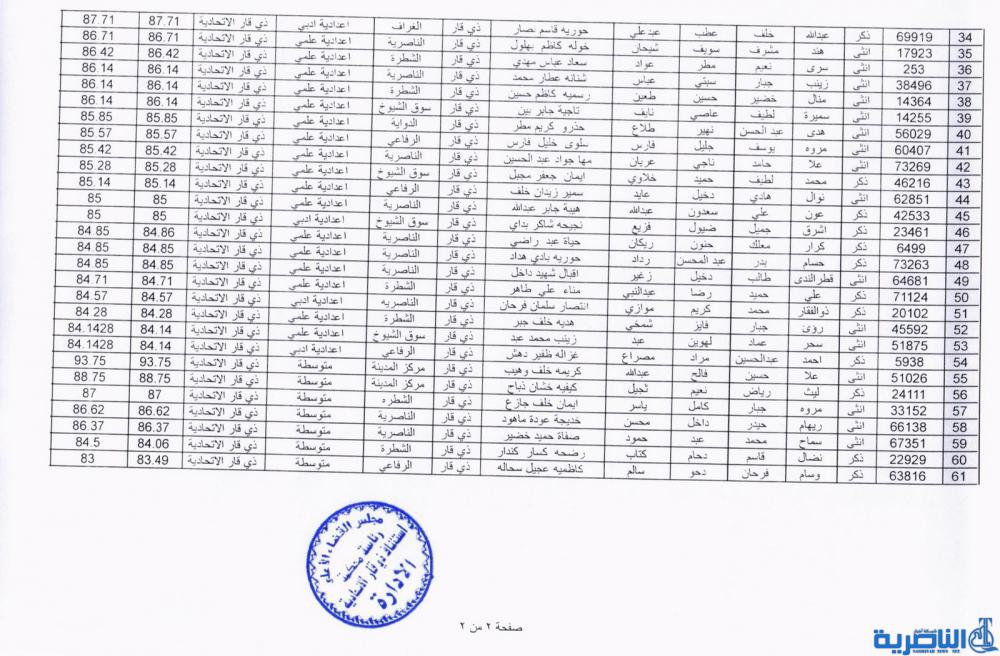 34 69919 ذكر عبدالله خلف عطب عبدعلي حوريه قاسم نصار ذي قار الغراف اعدادية ادبي ذي قار الاتحادية 87.71 87.71
35 17923 انثى هند مشرف سويف شيحان خوله كاظم بهلول ذي قار الناصرية اعدادية علمي ذي قار الاتحادية 86.71 86.71
36 253 انثى سرى نعيم مطر عواد سعاد عباس مهدي ذي قار الشطرة اعدادية علمي ذي قار الاتحادية 86.42 86.42
37 38496 انثى زينب جبار سبتي عباس شنانه عطار محمد ذي قار الناصرية اعدادية علمي ذي قار الاتحادية 86.14 86.14
38 14364 انثى منال خضير حسين طعين رسميه كاظم حسين ذي قار الشطرة اعدادية علمي ذي قار الاتحادية 86.14 86.14
39 14255 انثى سميرة لطيف عاصي نايف تاجية جابر بين ذي قار سوق الشيوخ اعدادية علمي ذي قار الاتحادية 86.14 86.14
40 56029 انثى هدى عبد الحسن نهير طلاع حذرو كريم مطر ذي قار الدواية اعدادية علمي ذي قار الاتحادية 85.85 85.85
41 60407 انثى مروه يوسف جليل فارس سلوى خليل فارس ذي قار الرفاعي اعدادية علمي ذي قار الاتحادية 85.57 85.57
42 73269 انثى علا حامد ناجي عريان مها جواد عبد الحسين ذي قار الناصرية اعدادية علمي ذي قار الاتحادية 85.42 85.42
43 46216 ذكر محمد لطيف حميد خلاوي ايمان جعفر مجبل ذي قار سوق الشيوخ اعدادية علمي ذي قار الاتحادية 85.28 85.28
44 62851 انثى نوال هادي دخيل عايد سمير زيدان خلف ذي قار الرفاعي اعدادية علمي ذي قار الاتحادية 85.14 85.14
45 42533 ذكر عون علي سعدون عبدالله هيبة جابر عبدالله ذي قار الناصرية اعدادية علمي ذي قار الاتحادية 85 85
46 23461 انثى اشرق جميل ضيول فزيع نجيحه شاكر بداي ذي قار سوق الشيوخ اعدادية ادبي ذي قار الاتحادية 85 85
47 6499 ذكر كرار معلك حنون ريكان حياة عبد راضي ذي قار الناصرية اعدادية علمي ذي قار الاتحادية 84.86 84.85
48 73263 ذكر حسام بدر عبد المحسن رداد حوريه بادي هداد ذي قار الناصرية اعدادية علمي ذي قار الاتحادية 84.85 84.85
49 64681 انثى قطرالندى طالب دخيل زغير اقبال شهيد داخل ذي قار الناصرية اعدادية علمي ذي قار الاتحادية 84.85 84.85
50 71124 ذكر علي حميد رضا عبدالنبي مناء علي طاهر ذي قار الشطرة اعدادية علمي ذي قار الاتحادية 84.71 84.71
51 20102 ذكر ذوالفقار محمد كريم موازي انتصار سلمان فرحان ذي قار الناصريه اعدادية ادبي ذي قار الاتحادية 84.57 84.57
52 45592 انثى رؤى جبار فايز شمخي هديه خلف جبر ذي قار الشطرة اعدادية علمي ذي قار الاتحادية 84.28 84.28
53 51875 انثى سحر عماد لهوين عبد زينب محمد عبد ذي قار سوق الشيوخ اعدادية علمي ذي قار الاتحادية 84.14 84.1428
54 5938 ذكر احمد عبدالحسين مراد مصراع غزاله ظفير دهش ذي قار الرفاعي اعدادية ادبي ذي قار الاتحادية 84.14 84.1428
55 51026 انثى علا حسين فالح عبدالله كريمه خلف وهيب ذي قار مركز المدينة متوسطة ذي قار الاتحادية 93.75 93.75
56 24111 ذكر ليث رياض نعيم ثجيل كيفيه خشان ذباح ذي قار مركز المدينة متوسطة ذي قار الاتحادية 88.75 88.75
57 33152 انثى مروه جبار كامل ياسر ايمان خلف جازع ذي قار الشطره متوسطة ذي قار الاتحادية 87 87
58 66138 انثى ريهام حيدر داخل محسن خديجة عودة ماهود ذي قار الناصرية متوسطة ذي قار الاتحادية 86.62 86.62
59 67351 انثى سماح محمد عبد حمود صفاة حميد خضير ذي قار الناصرية متوسطة ذي قار الاتحادية 86.37 86.37
60 22929 ذكر نضال قاسم دحام كتاب رضحه كسار كندار ذي قار الشطرة متوسطة ذي قار الاتحادية 84.06 84.5
61 63816 ذكر وسام فرحان دحو سالم كاظميه عجيل سحاله ذي قار الرفاعي متوسطة ذي قار الاتحادية 83.49 83
مجلس القضاء الأعلى
رئاسة محكمة
استئناف ذي قار الاتحادية
الادارة
صفحة ٢ من ٢
شبكة اخبار
الناصرية
NASIRIYAH NEWS NET